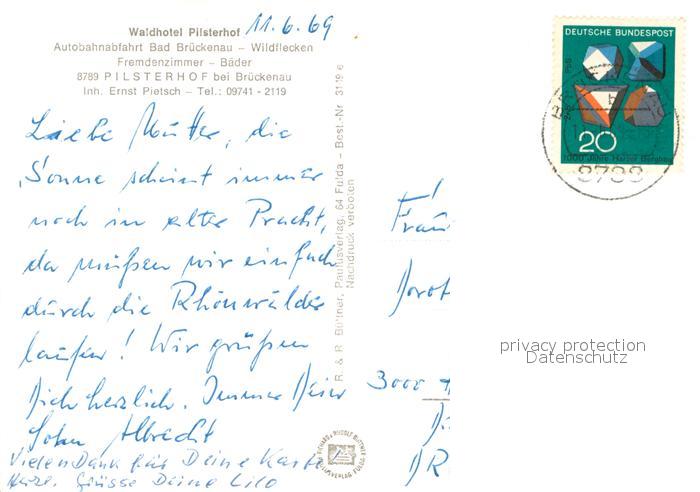 Waldhotel Pilsterhof 11.6.69
Autobahnabfahrt Bad Brückenau – Wildflecken
Fremdenzimmer – Bäder
8789 PILSTERHOF bei Brückenau
Inh. Ernst Pietsch – Tel.: 09741 - 2119
Liebe Mutter, die
Sonne scheint immer
noch in alter Pracht,
da müßen wir einfach
durch die Rhönwälder
laufen! Wir grüßen
Dich herzlich. Immer Dein
Sohn Albrecht
Vielen Dank für Deine Karte
Herzl. Grüsse Deine Lilo
R. & R. Büttner, Paulusverlag, 64 Fulda – Best.-Nr. 
Nachdruck verboten
DEUTSCHE BUNDESPOST
20
1000 Jahre Harzer Bergbau
Frau
Dorot
3000
privacy protection
Datenschutz